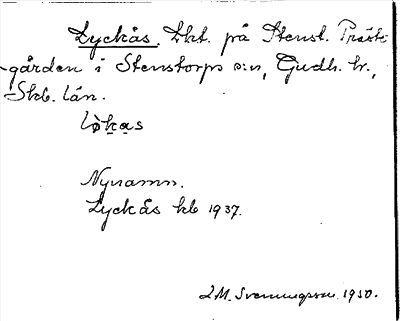 Lyckås. Lht. på Stenst. Präst-
-gården i Stenstorps s:n, Gudh. hr.,
Skb. län.
lø̀kas
Nynamn.
Lyckås kb 1937.
I.M. Svenungsson 1950.